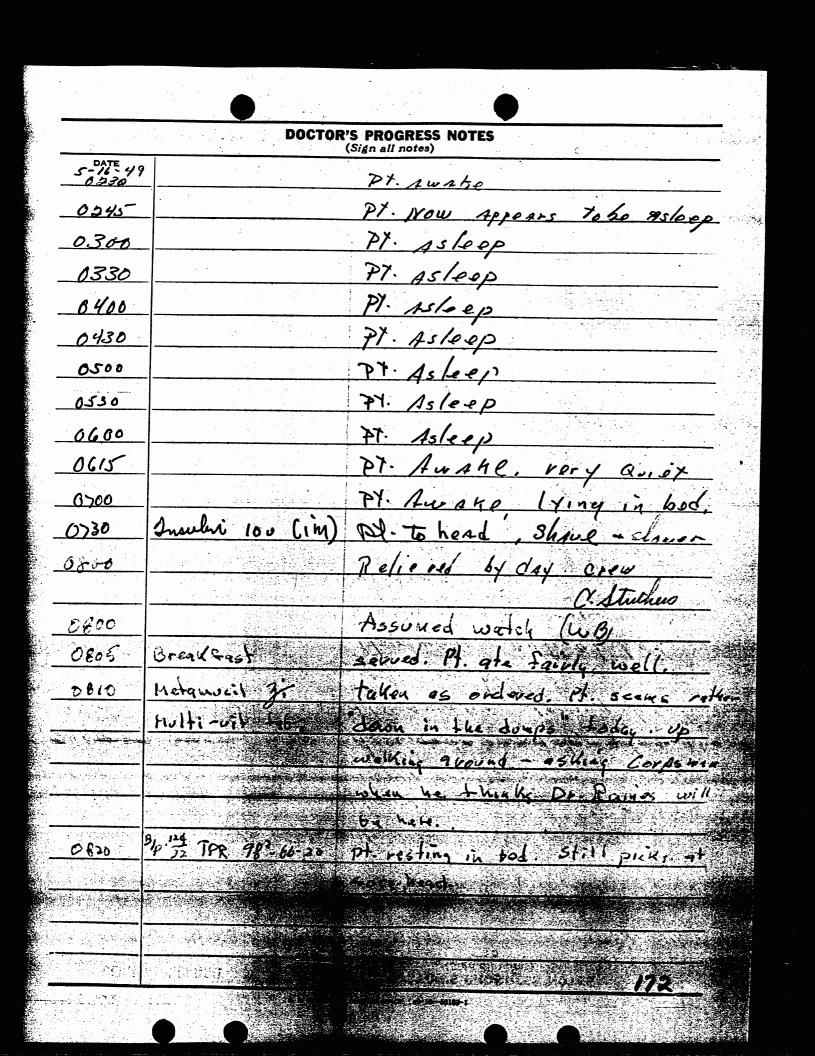 DOCTOR'S PROGRESS NOTES
(Sign all notes)
DATE
5-16-49
0230 Pt. awake
0245 Pt. Now appears to be asleep
0300 Pt. Asleep
0330 Pt. Asleep
0400 Pt. Asleep
0430 Pt. Asleep
0500 Pt. Asleep
0530 Pt. Asleep
0600 Pt. Asleep
0615 Pt. Awake, very Quiet
0700 Pt. Awake, lying in bed.
0730 Insulin 10u (IM) Pt. to head, Shave + shower
0800 Relieved by day crew
C. Stuthers
0800 Assumed watch (WB)
0805 Breakfast served. Pt. ate fairly well.
0810 Metamucil taken as ordered. Pt. seems rather
Multi-vit "down in the dumps" today - up
walking around - asking Corpsman
when he thinks Dr. Raines will
be here.
0820 B/P 124/72 TPR 98-66-20 Pt. resting in bed. Still picks at
head.
172